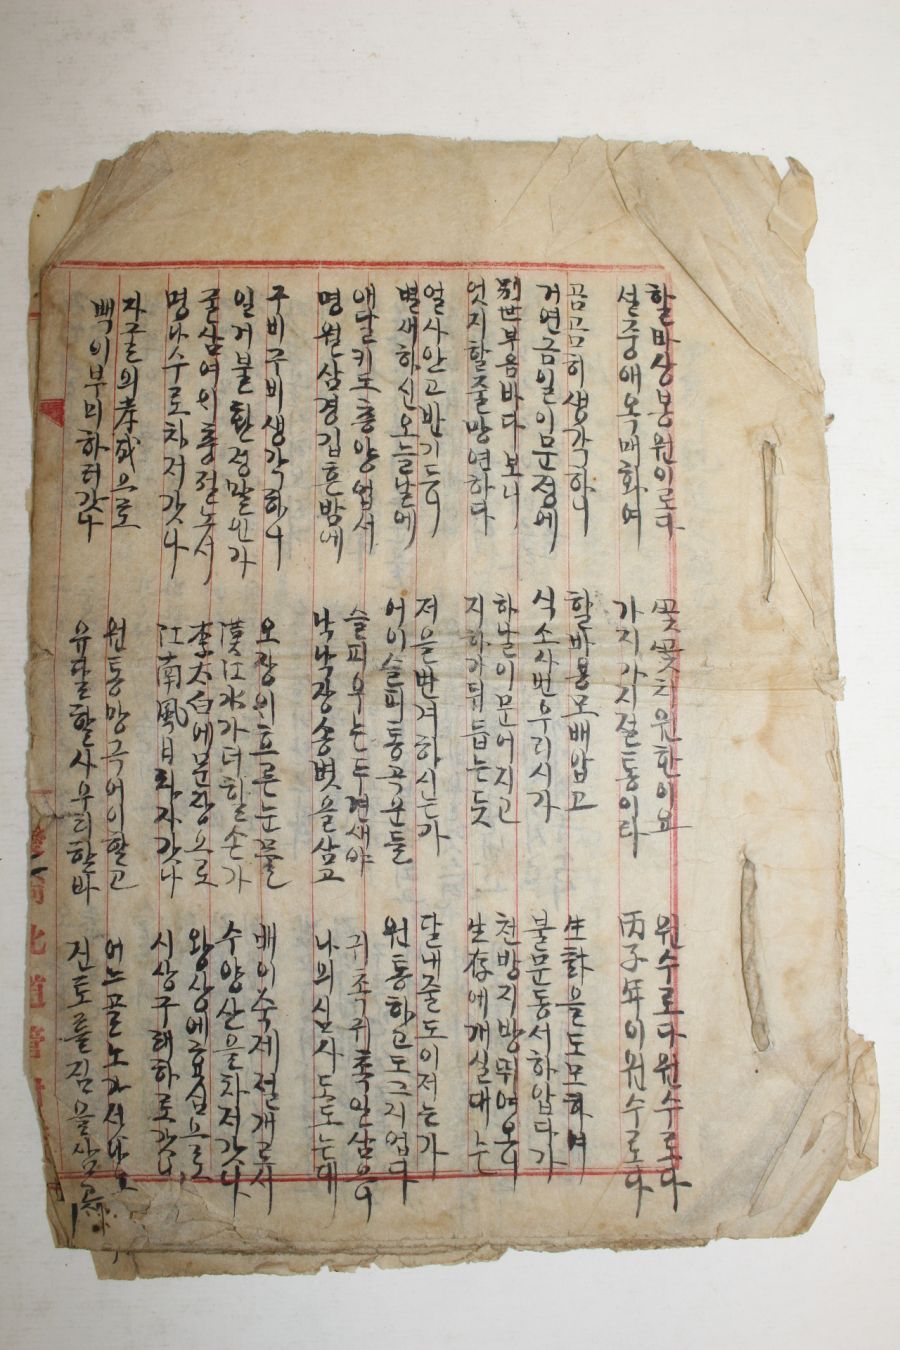 할바상봉원이로다
설중애옥매화여
꽃꽃치원한이요
가지가지절통이라
원수로다원수로다
丙子年이원수로다
곰곰히생각하니
거연금일이문정에
할바봉모배압고
식소사번우리시가
生화을도모하며
불문동서하압다가
別世부음바다보니
엇지할줄망연하다
하날이문어지고
지하가뒤듭는듯
천방지방뛰여오니
生存애개실대는
얼사안고반기든니
별세하신오늘날에
저을반겨하시는가
어이슬피통곡운들
달내줄도이저는가
원통하고도그지업다
애달키도층양업서
명월삼경깁흔밤에
슬피우는두견새야
낙낙장송벗을삼고
귀촉귀촉일삼으니
나의심사도도는대
구비구비생각하니
일거불환정말인가
오장의흐른눈물
漢江水가더할손가
배이숙제절개로서
수양산을차저갓다
굴삼여의충절노서
명나수로차저갓나
李太白에문장으로
江南風月하자갓나
왕상에효심으로
시상구해하로갓나
자굴의孝誠으로
백이부미하러갓나
원통망극어이할고
유달할사우리할바
어느골노가서나요
진토를집을삼고